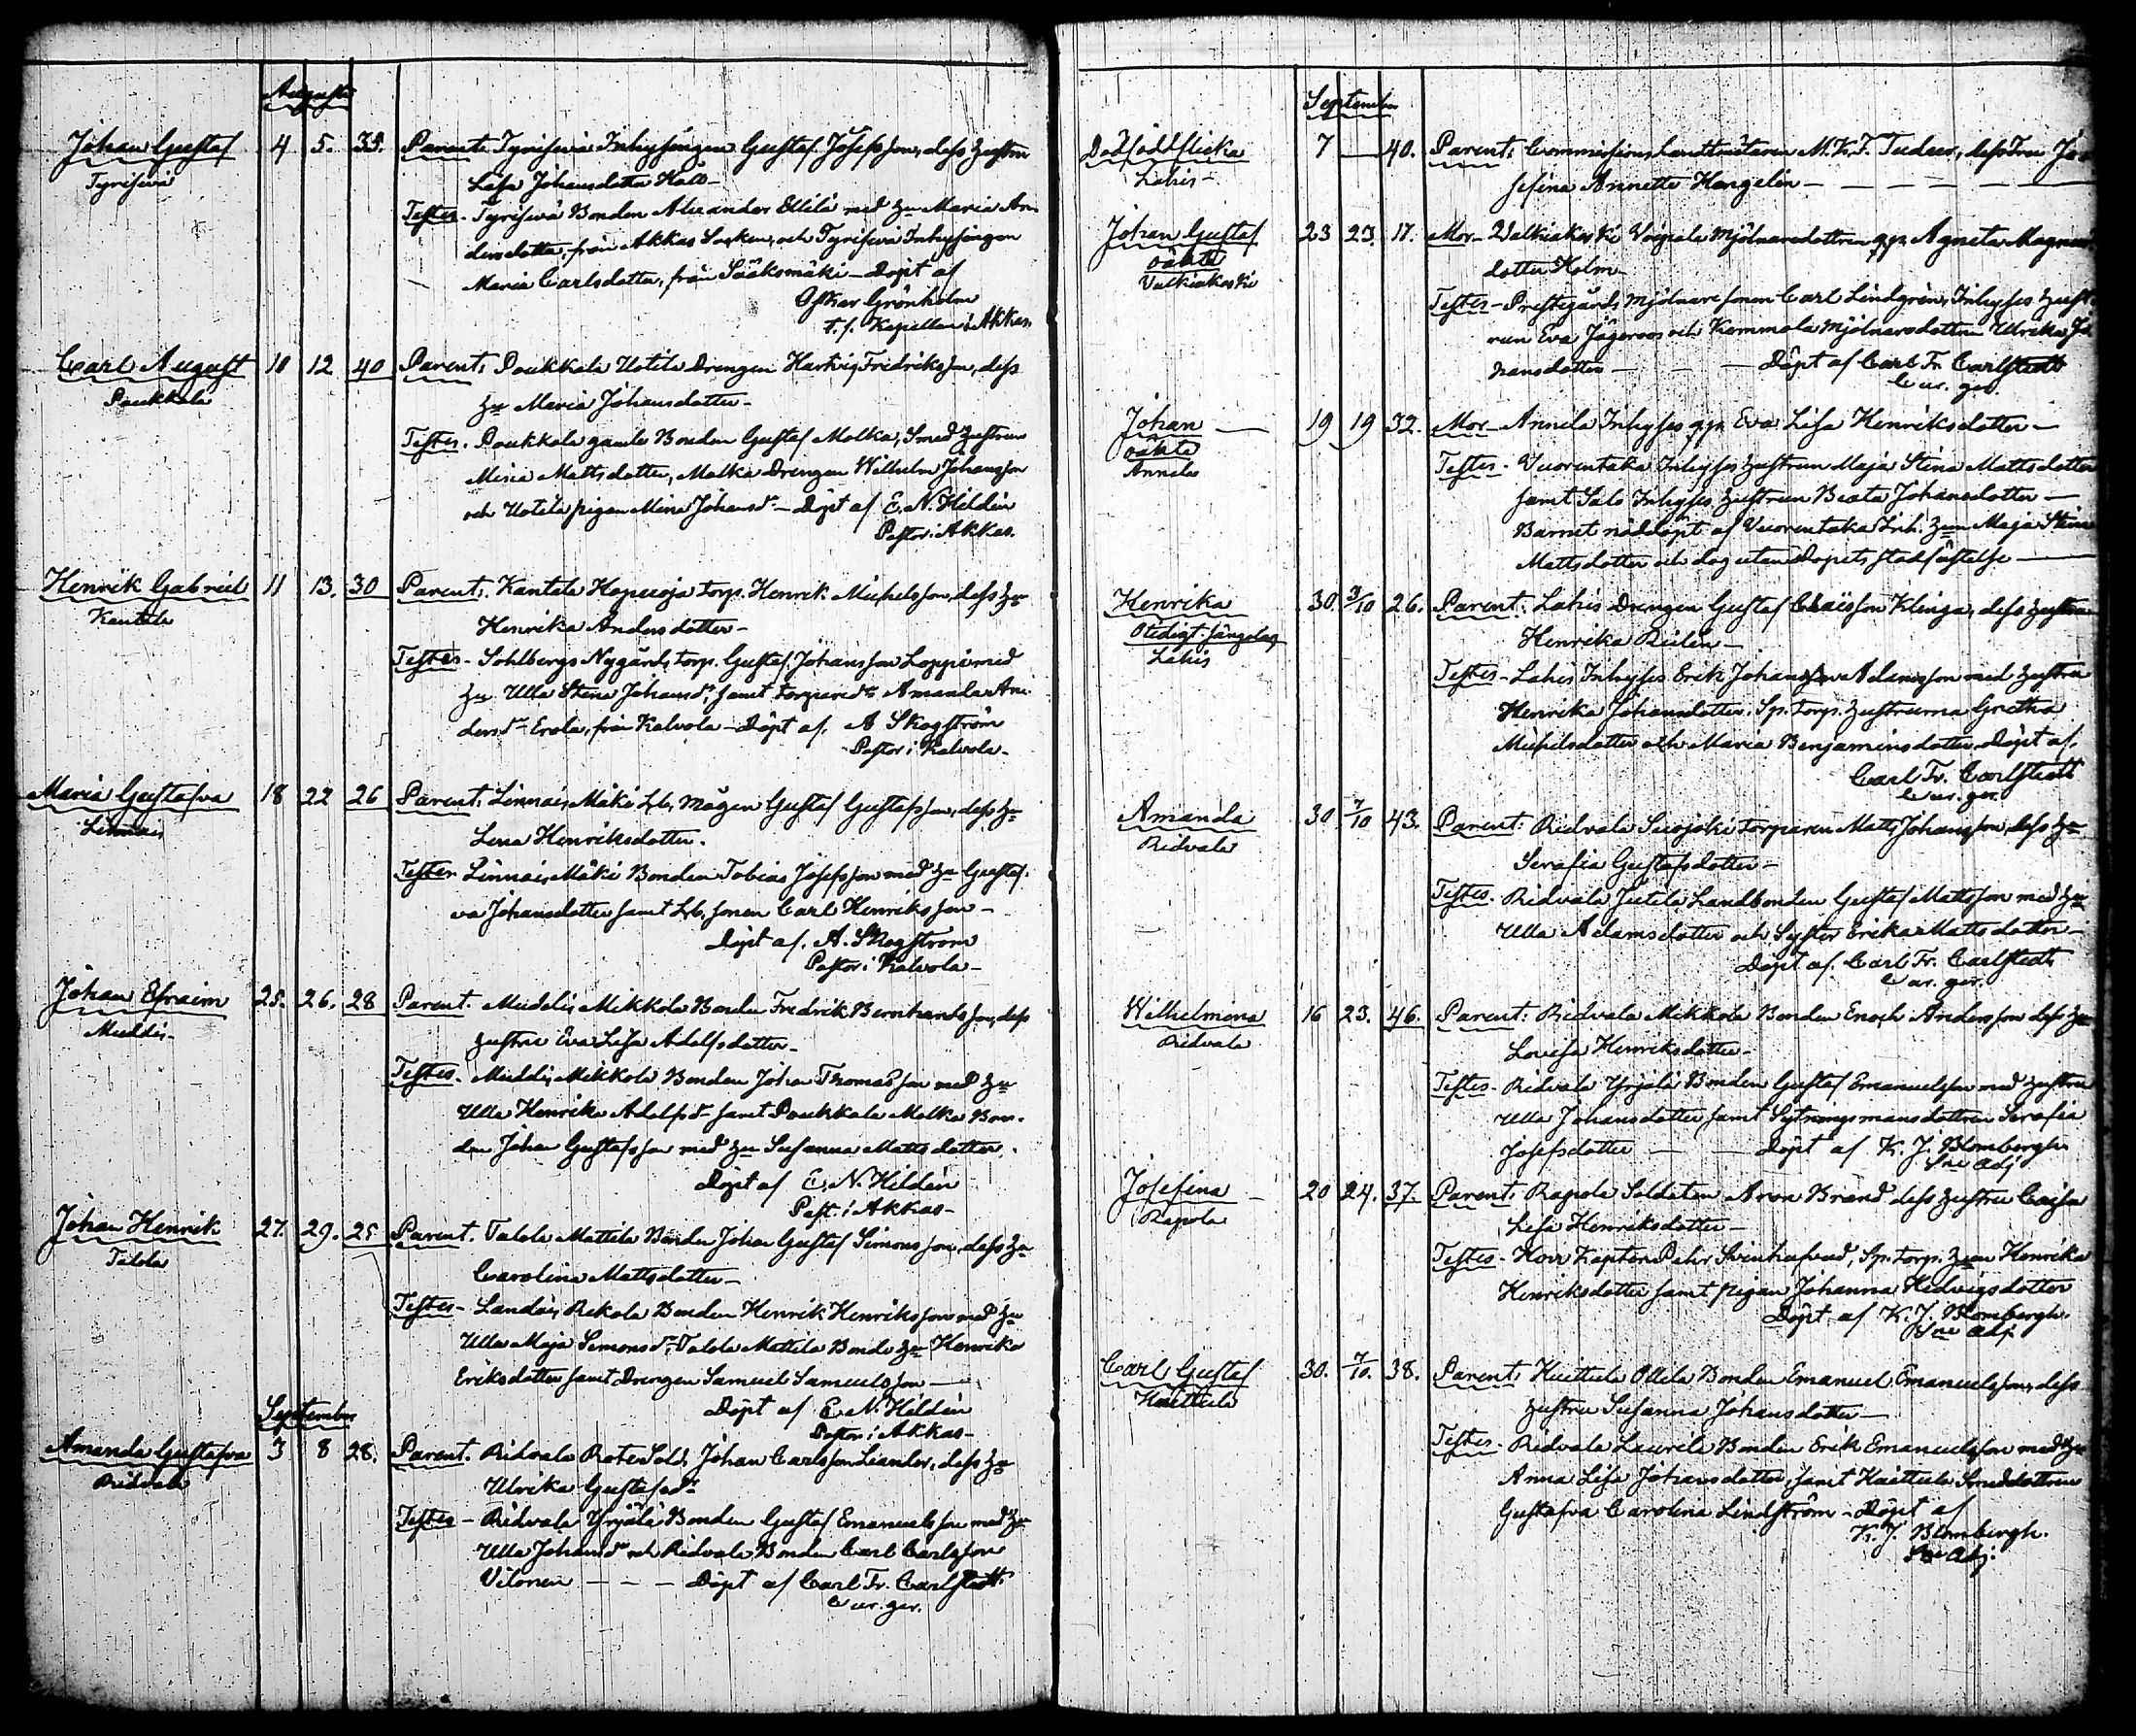 Augusti
Johan Gustaf 4 5. 35. Parent. Tyrisevä Inhysingen Gustaf Josefsson, dess hustru
Tyrisevä Lisa Johansdotter
Testes- Tyrisevä Bonden Alexander Ellilä med hu Maria An-
dersdotter, från Akkas Socken, och Tyrisevä Inhysingen
Maria Carlsdotter, från Sääksmäki - Döpt af
Oskar Grönholm
t. f. Kapellan i Akkas.
Carl August 10 12 40 Parent. Poukkala Uotila Drengen Hartvig Fredriksson, dess
Poukkala hu Maria Johansdotter-
Testes. Poukkala gamle Bonden Gustaf Molka, Smed hustrun
Mina Mattsdotter, Molka Drengen Wilhelm Johansson
och Uotila pigan Mina Johansdr - Döpt af E. N. Hildén
Pastor i Akkas.
Henrik Gabriel 11 13. 30 Parent. Kantala Hopeoja torp. Henrik Michelsson, dess hu
Kantala Henrika Andersdotter-
Testes- Sohlbergs Nygårds torp. Gustaf Johansson Loppi med
hu Ulla Stina Johansdr, samt torparedr Amanda An-
dersdr Erola, från Kalvola - Döpt af. A Skogström
Pastor i Kalvola-
Maria Gustafva 18 22 26 Parent. Linnais Mäki Lb. mågen Gustaf Gustafsson, dess hu
Linnais Lena Henriksdotter.
Testes Linnais Mäki Bonden Tobias Josefsson med hu Gustaf-
va Johansdotter samt Lb. sonen Carl Henriksson-
Döpt af. A. Skogström
Pastor i Kalvola-
Johan Efraim 25. 26. 28 Parent. Muddis Mikkola Bonden Fredrik Bernhardsson, dess
Muddis- hustru Eva Lisa Adolfsdotter-
Testes- Muddis Mikkola Bonden Johan Thomasson med hu
Ulla Henrika Adolfsdr samt Poukkala Molka Bon-
den Johan Gustafsson med hu Susanna Mattsdotter.
Döpt af E. N. Hildén
Past. i Akkas-
Johan Henrik 27. 29. 25 Parent. Talola Mattila Bonden Johan Gustaf Simonsson, dess hu
Talola Carolina Mattsdotter-
Testes- Landais Rekola Bonden Henrik Henriksson med hu
Ulla Maja Simonsdr, Talola Mattila Bonde hu Henrika
Eriksdotter samt Drengen Samuel Samuelsson-
Döpt af E. N. Hildén
Pastor i Akkas-
September
Amanda Gustafva 3 8 28. Parent. Ridvala Rote Sold. Johan Carlsson Liander, dess hu
Ridvala Ulrika Gustafsdr
Testes- Ridvala Yrjälä Bonden Gustaf Emanuelsson med hu
Ulla Johansdr och Ridvala Bonden Carl Carlsson
Vilonen - - - Döpt af Carl Fr. Carlstedt
Cur. ger.
September
Dödfödd flicka 7 — 40. Parent. Commissions Landtmätaren M. K. F. Tudeer, dess Fru Jo-
Lahis- sefina Annette Hongelin - - - -
Johan Gustaf 23 23. 17. Mor- Valkiakoski Voipala Mjölnaredottren qp. Agneta Magnus
oäkta dotter Holm-
Valkiakoski Testes- Prestgårds Mjölnare sonen Carl Lindgrén, Inhyses hust-
run Eva Jägeroos och Kemmola Mjölnaredottren Ulrika Jo-
hansdotter - - - Döpt af Carl Fr. Carlstedt
Cur. ger.
Johan — 19 19 32. Mor- Annila Inhyses qp. Eva Lisa Henriksdotter-
oäkta Testes- Vuorentaka Inhyses hustrun Maja Stina Mattsdotter
Annila samt Salo Inhyses hustrun Beata Johansdotter-
Barnet nöddöpt af Vuorentaka Inh. hun Maja Stina
Mattsdotter och dog utan dopets stadfästelse-
Henrika 30. 3/10 26. Parent. Lahis Drengen Gustaf Klinga, dess hustru
Lahis Henrika
Testes- Lahis Inhyses Erik Johansson Adamsson med hustru
Henrika Johansdotter, Sp. torp. hustrurna Gretha
Michelsdotter och Maria Benjaminsdotter, Döpt af.
Carl Fr. Carlstedt
Cur. ger.
Amanda 30 7/10 43. Parent. Ridvala Suojoki torparen Matts Johansson, dess hu
Ridvala Serafia Gustafsdotter-
Testes. Ridvala Jutila Landbonden Gustaf Mattsson med hu
Ulla Adamsdotter och Syster Erika Mattsdotter-
Döpt af. Carl Fr. Carlstedt
Cur. ger.
Wilhelmina 16 23. 46. Parent. Ridvala Mikkola Bonden Enoch Andersson dess hu
Ridvala Lovisa Henriksdotter-
Testes- Ridvala Yrjälä Bonden Gustaf Emanuelsson med hustru
Ulla Johansdotter, samt Sytningsmansdottren Serafia
Josefsdotter - - Döpt af K. J. Blombergh.
Sne Adj.
Josefina - 20 24. 37. Parent. Rapola Soldaten Aron Brand dess hustru Caisa
Rapola Lisa Henriksdotter-
Testes- Herr Kapten Pehr Svinhufvud, Sp. torp. hun Henrika
Henriksdotter samt pigan Johanna Hedvigsdotter
Döpt af K. J. Blombergh.
Sne Adj.
Carl Gustaf 30. 7/10. 38. Parent. Huittula Ollila Bonden Emanuel Emanuelsson, dess
Huittula hustru Susanna Johansdotter-
Testes- Ridvala Laurila Bonden Erik Emanuelsson med hu
Anna Lisa Johansdotter, samt Huittula Smedsdottren
Gustafva Carolina Lindström - Döpt af
K. J. Blombergh.
Sne Adj.